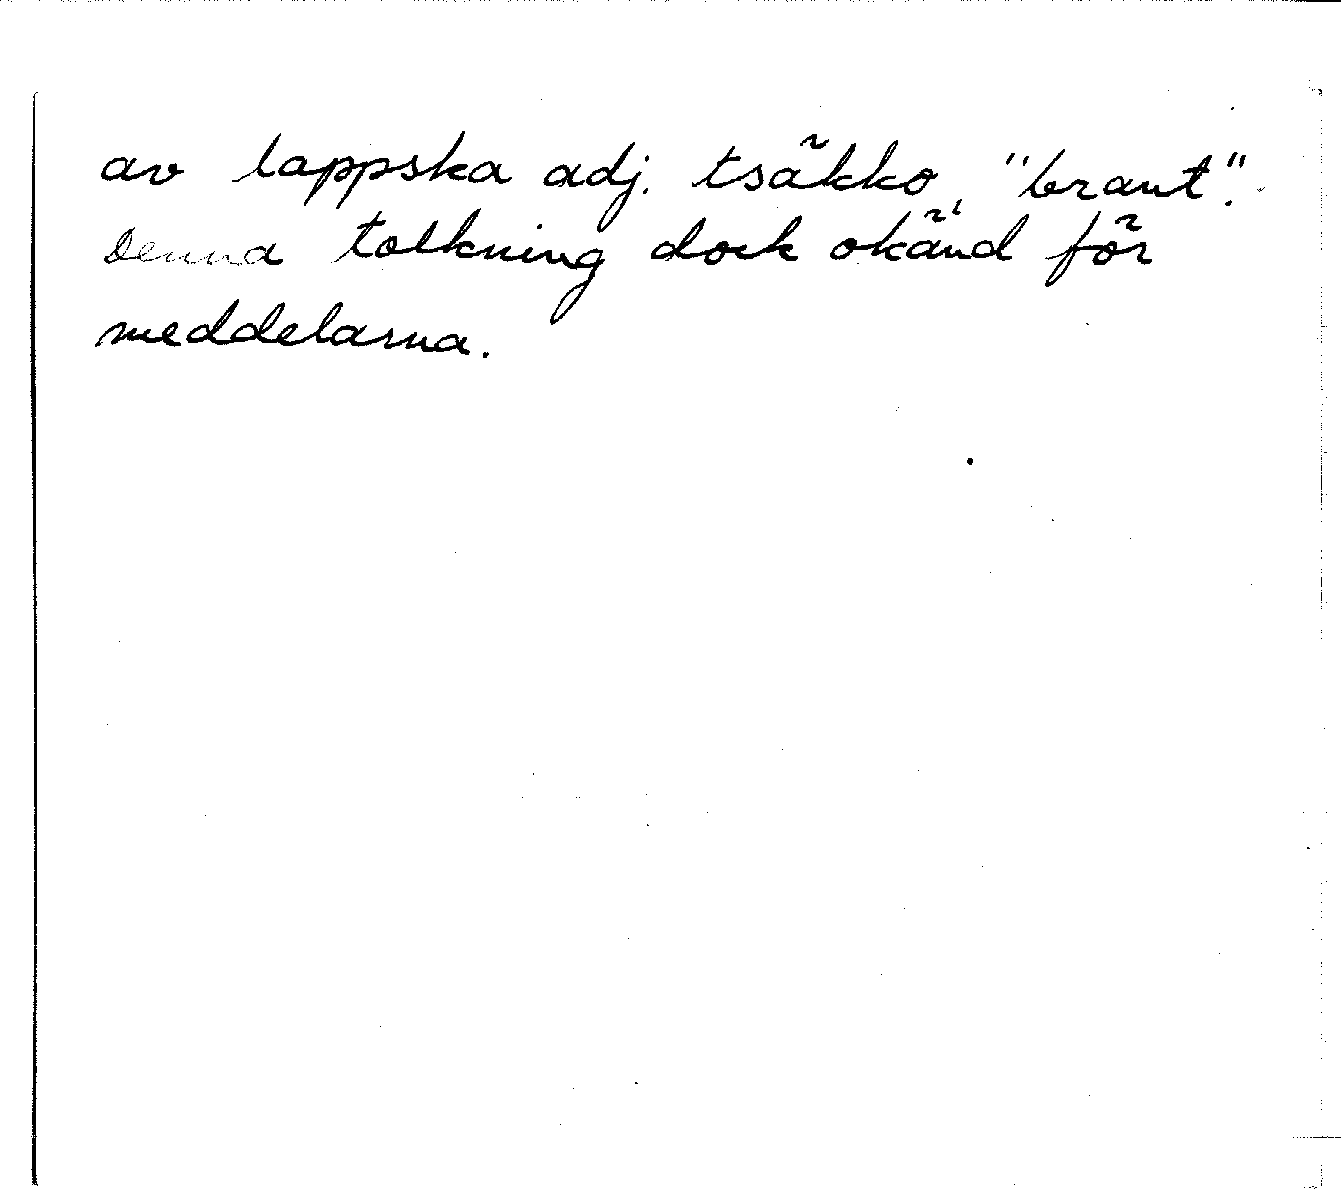 av lappska adj. tsäkko, "brant".
Denna tolkning dock okänd för
meddelarna.